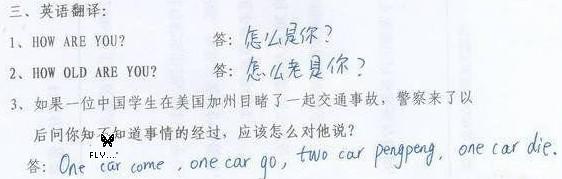 三、英语翻译:
1、HOW ARE YOU? 答: 怎么是你?
2、HOW OLD ARE YOU? 答: 怎么老是你?
3、如果一位中国学生在美国加州目睹了一起交通事故，警察来了以
后问你知不知道事情的经过，应该怎么对他说?
答: One car come , one car go , two car pengpeng, one car die.
FLY...